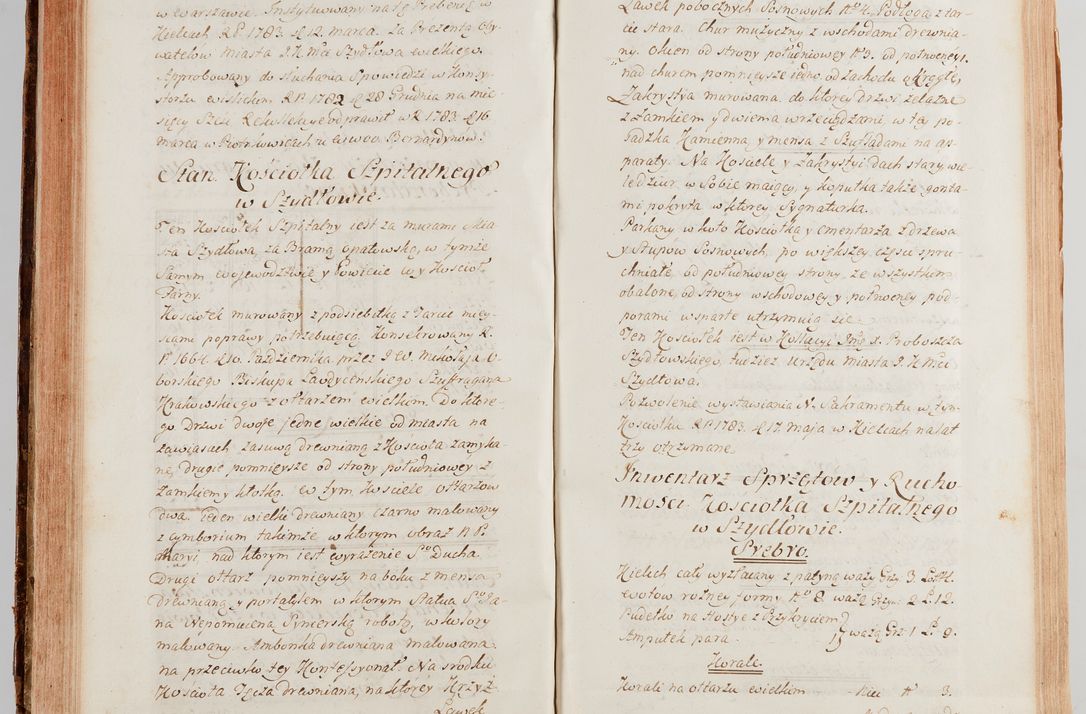 w Warszawie. Instytuowany na tę Prebendę w
Kielcach R.P. 1783. d. 12. marca. za Prezentą Oby-
watelow miasta J. K. Mci Szydłowa wielkiego.
Approbowany do słuchania Spowiedzi w Konsy-
storzu R.P. 1782 d. 28 Grudnia na mie-
sięcy Sześć Rekollekcye odprawił w R. 1783. d. 16
marca w Piotrkwicach u WW. OO. Bernardynow.
Stan Kościołka Szpitalnego
w Szydłowie.
Ten Kościołek Szpitalny iest za murami Mia-
sta Szydłowa, za Bramą opatowską, w tymże
Samym Woiewodztwie y Powiecie co y Kościoł
Farny.
Kościołek murowany z podsiebitką z Tarcic miey-
scami poprawy potrzebuiącą. Konsekrowany R.
P. 1664. d. 10. Pazdziernika przez J. W. Mikołaja O-
borskiego Biskupa Laodyceńskiego Szuffragana
Krakowskiego z ołtarzem wielkim. Do ktore-
go Drzwi dwoje jedne wielkie od miasta na
zawiasach zasuwą drewnianą z Kościoła zamyka-
ne, drugie pomnieysze od strony południowey z
Zamkiem y kłotką. W tym Kościele ołtarzow
dwa. Jeden wielki drewniany czarno malowany
z cymborium takimże w ktorym obraz N. P.
Maryi, nad ktorym iest wyrażenie Sgo Ducha.
Drugi ołtarz pomnieyszy na boku z mensą
drewnianą y portatylem w ktorym Statua Sgo Ja-
na Nepomucena Snicerską roboty, w kolory
malowany. Ambonka drewniana malowana
na przeciwko tey Konfessyonał. Na srodku
Kościoła Tęcza drewniana, na ktorey Krzyż.
Ławek
Ławek pobocznych Sosnowych No 4. Podłoga z tar-
cic stara. Chur muzyczny z wschodami drewnia-
ny. Okien od strony południowey No 3. od połnocney 1.
nad churem pomnieysze iedno od zachodu okrągłe,
Zakrystya murowana. do ktorey drzwi żelazne
z Zamkiem y dwiema wrzeciądzami w tey po-
sadzka Kamienna, y mensa z Szufladami na ap-
paraty. Na Kościele y Zakrystyi dach stary, wie-
le dziur w Sobie maiący, y kopułka także gonta-
mi pokryta w ktorey Sygnaturka.
Parkany w koło Kościołka y cmentarza z drzewa
y słupow Sosnowych, po większey części spru-
chniałe od południowey strony, ze wszystkim
obalone, od strony wschodowey y połnocney pod-
porami wsparte utrzymuią się.
Ten Kościołek iest w Kollacyi Jmć X. Proboszcza
Szydłowskiego, tudzież urzędu miasta J. K. Mci
Szydłowa.
Pozwolenie wystawiania N. Sakramentu w tym
Kościołku R.P. 1783. d. 17. maja w Kielcach na lat
trzy otrzymane.
Inwentarz Sprzętow y Rucho
mości Kościołka Szpitalnego
w Szydłowie.
Srebro.
Kielich cały wyzłacany z patyną waży Grz. 3. Łot 14.
Wotow rożney formy No 8. ważą Grzy: 2 Ł. 12.
Pudełko na Hostye z Przykryciem
Ampułek para. ważą Grz: 1 Ł. 9.
Korale.
Korali na ołtarzu wielkim - Nici No 3.